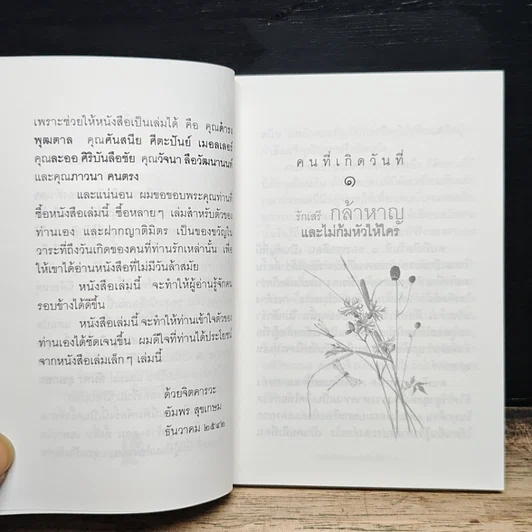 เพราะช่วยให้หนังสือเป็นเล่มได้ คือ คุณดำรง
พุฒตาล คุณคันสนีย ศีตะปันย์ เมอลเลอร์
คุณละออ ศิริบันลือชัย คุณวัจนา ลือวัฒนานนท์
และคุณภาวนา คนตรง
และแน่นอน ผมขอขอบพระคุณท่านที่
ซื้อหนังสือเล่มนี้ ซื้อหลายๆ เล่มสำหรับตัวของ
ท่านเอง และฝากญาติมิตร เป็นของขวัญใน
วาระที่ถึงวันเกิดของคนที่ท่านรักเหล่านั้น เพื่อ
ให้เขาได้อ่านหนังสือที่ไม่มีวันล้าสมัย
หนังสือเล่มนี้ จะทำให้ผู้อ่านรู้จักคน
รอบข้างได้ดีขึ้น
หนังสือเล่มนี้ จะทำให้ท่านเข้าใจตัวของ
ท่านเองได้ชัดเจนขึ้น ผมดีใจที่ท่านได้ประโยชน์
จากหนังสือเล่มเล็กๆ เล่มนี้
ด้วยจิตคารวะ
อัมพร สุขเกษม
ธันวาคม ๒๕๔๒
คนที่เกิดวันที่
๑
รักเสรี กล้าหาญ
และไม่ก้มหัวให้ใคร